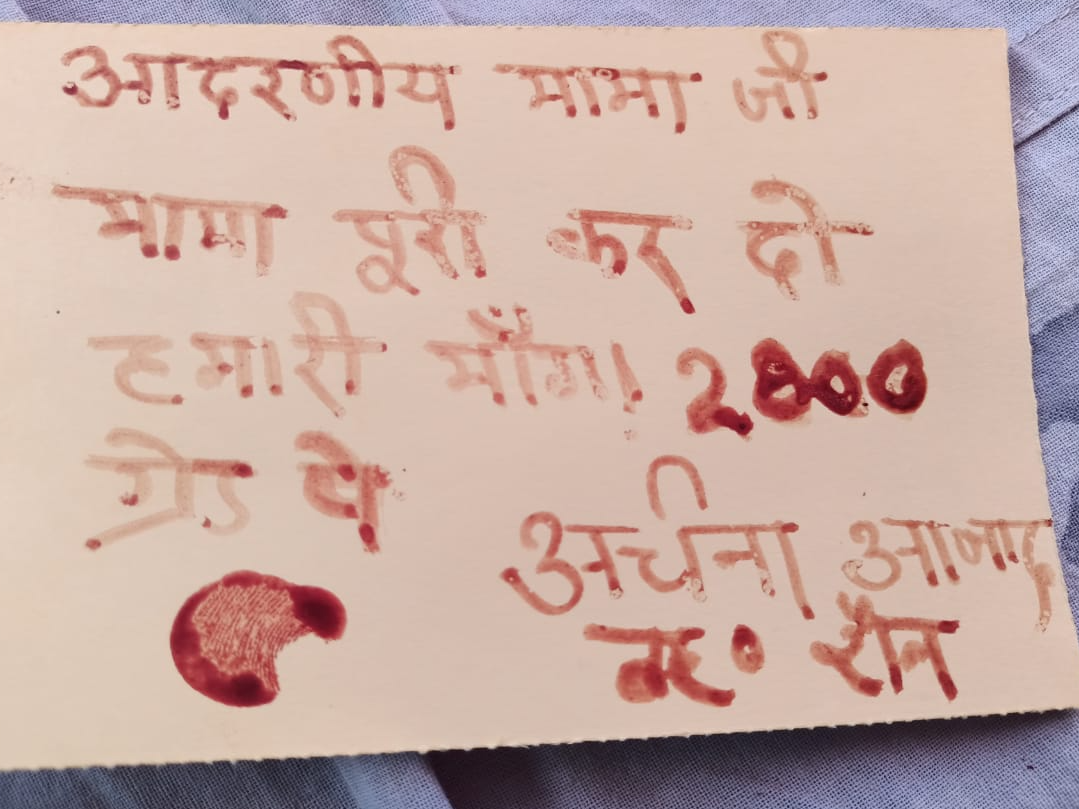 आदरणीय मामा जी
मामा पूरी कर दो
हमारी माँग। 2800
ग्रेड पे
अर्चना आजाद
रौन